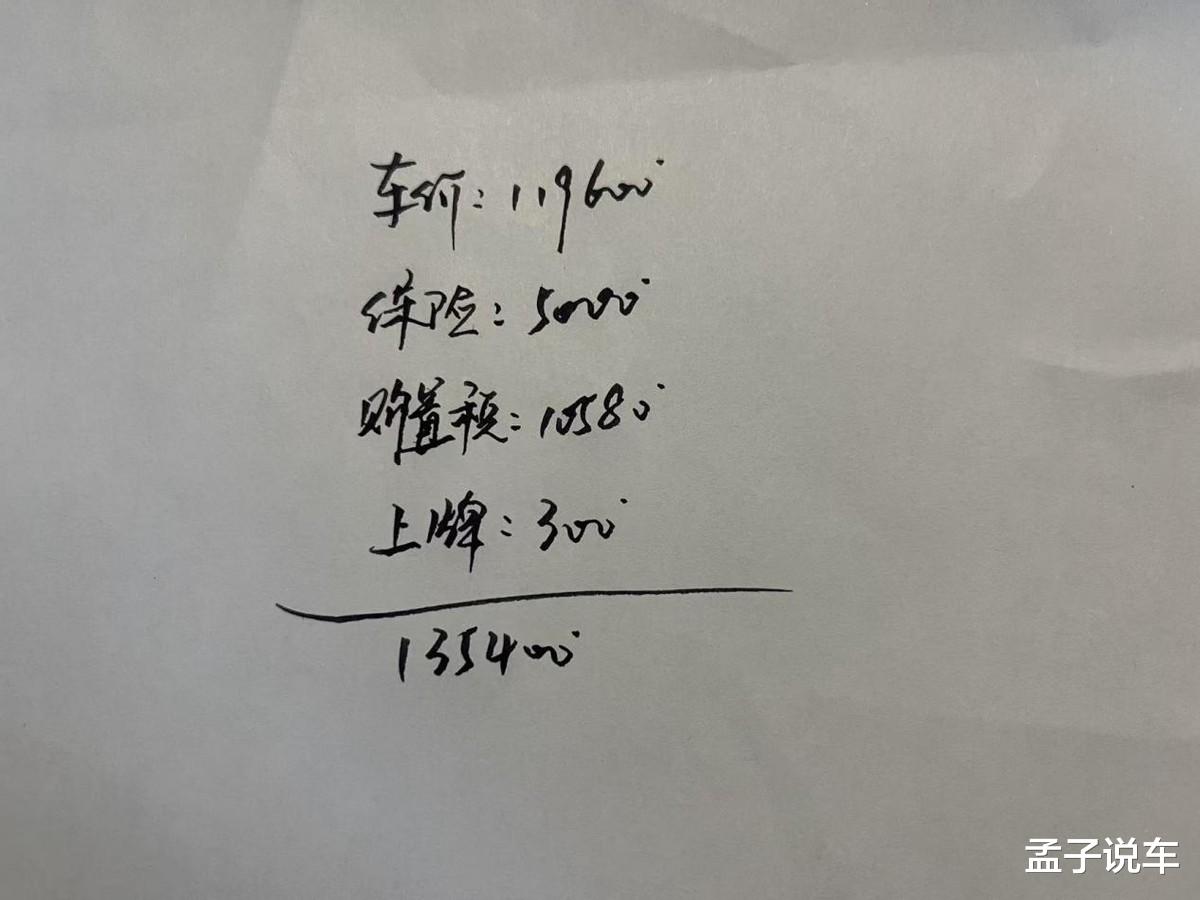 车价：119600
保险：5000
购置税：10580
上牌：300
135400
孟子说车